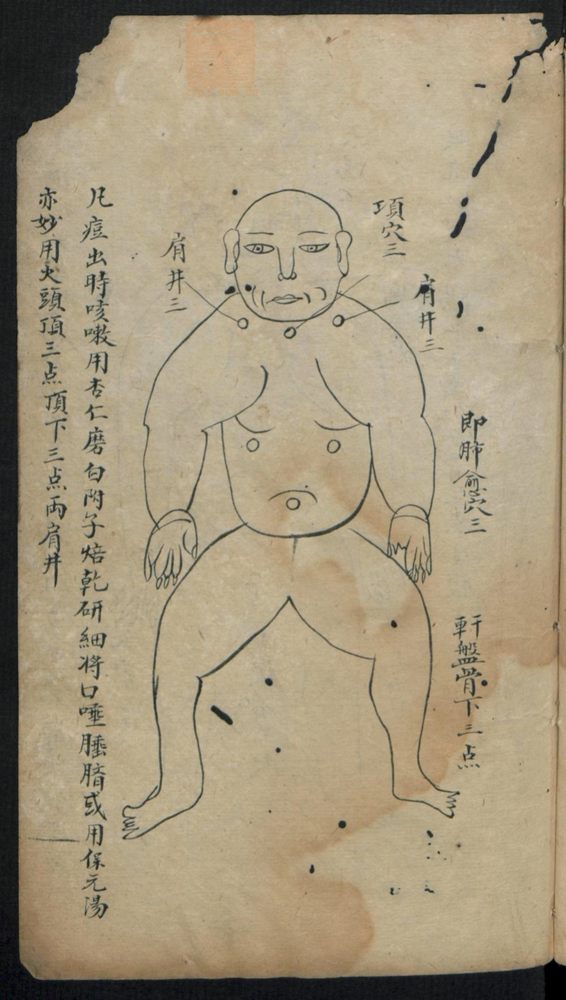 項穴三
肩井三
肩井三
即肺俞穴三
骨下三点
凡痘出時咳嗽用杏仁磨白附子焙乾研細将口唾
或用保元湯
亦妙用火頭頂三点頂下三点両肩井